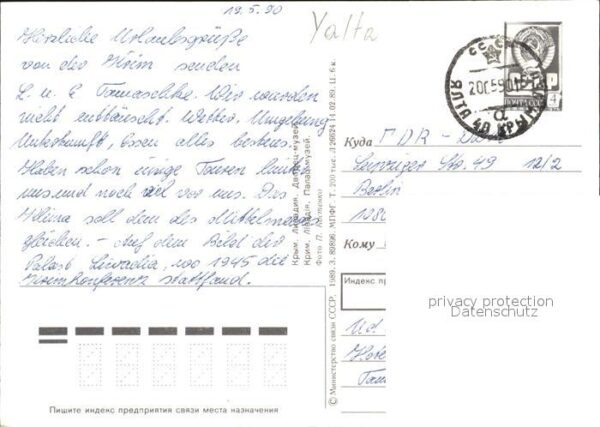 19.5.90
Yalta
Herzliche Urlaubsgrüße
von der Krim senden
L. u. E. Tomaschke. Wir wurden
nicht enttäuscht. Wetter, Umgebung
Unterkunft, Essen alles bestens.
Haben schon einige Touren hinter
uns und noch viel vor uns. Das
Klima soll dem des Mittelmeers
gleichen. - Auf dem Bild der
Palast Livadia, wo 1945 die
Krimkonferenz stattfand.
Пишите индекс предприятия связи места назначения
Крым. Ливадия. Дворец-музей
Крим. Лівадія. Палац-музей
Фото
© Министерство связи СССР. 1989. З. 89896. МПФГ. Т. 200 тыс. 14.02.89. Ц. 6 к.
СССР
ПОЧТА СССР
4
ЯЛТА 40 КРЫМ
Куда
DDR
Leipziger Str. 49 12/2
Berlin
108
Кому
Индекс пр
privacy protection
Datenschutz
Ud
Hote